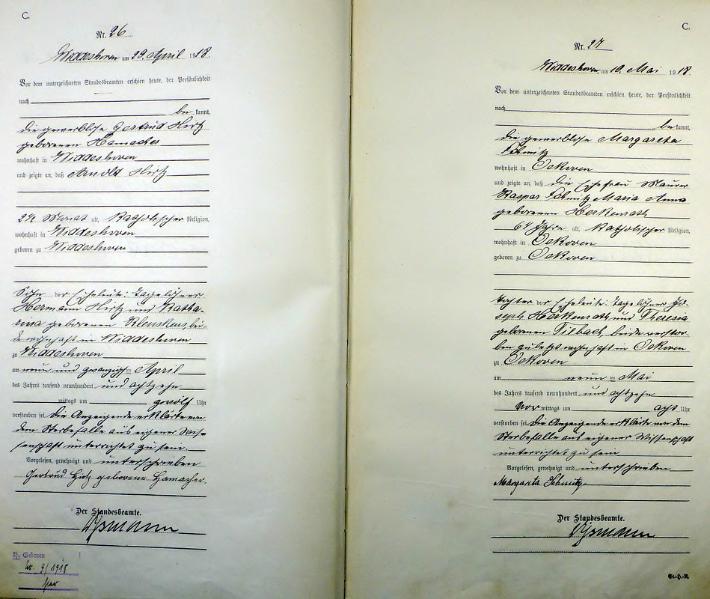 C.
Nr. 26
am 29. April 1918
Vor dem unterzeichneten Standesbeamten erschien heute, der Persönlichkeit
nach
be kannt,
die gewerblose Gertrud Hirtz
geborenen Hamacher
wohnhaft in Widdeshoven
und zeigte an, daß Arnold Hirtz
Monat alt, Katholischer Religion,
wohnhaft in Widdeshoven
geboren zu Widdeshoven
Sohn der Eheleute Tagelöhner
Hermann Hirtz und Katha-
rina geborenen bei-
de wohnhaft in Widdeshoven
zu Widdeshoven
am neun und zwanzig= April
des Jahres tausend neunhundert und achtzehn
mittags um zwölf Uhr
verstorben sei. Die Anzeigende erklärte von
dem Sterbefalle aus eigener Wis-
senschaft unterrichtet zu sein.
Vorgelesen, genehmigt und unterschrieben
Gertrud Hirtz geborene Hamacher.
Der Standesbeamte.
Geboren
C.
Nr. 27
am 10. Mai 1918
Vor dem unterzeichneten Standesbeamten erschien heute, der Persönlichkeit
nach
be kannt,
die gewerblose Margareta
Schmitz
wohnhaft in Oekoven
und zeigte an, daß die Ehefrau Maurer
Kaspar Schmitz Maria Anna
geborenen Herkenrath
64 Jahre alt, katholischer Religion,
wohnhaft in Oekoven
geboren zu Oekoven
Tochter der Eheleute Tagelöhner Jo-
seph Herkenrath und Theresia
geborenen beide verstor-
ben zuletzt wohnhaft in Oekoven
zu Oekoven
am neun= Mai
des Jahres tausend neunhundert und achtzehn
Vor mittags um acht Uhr
verstorben sei. Die Anzeigende erklärte von dem
Sterbefalle aus eigener Wissenschaft
unterrichtet zu sein
Vorgelesen, genehmigt und unterschrieben
Margareta Schmitz
Der Standesbeamte.